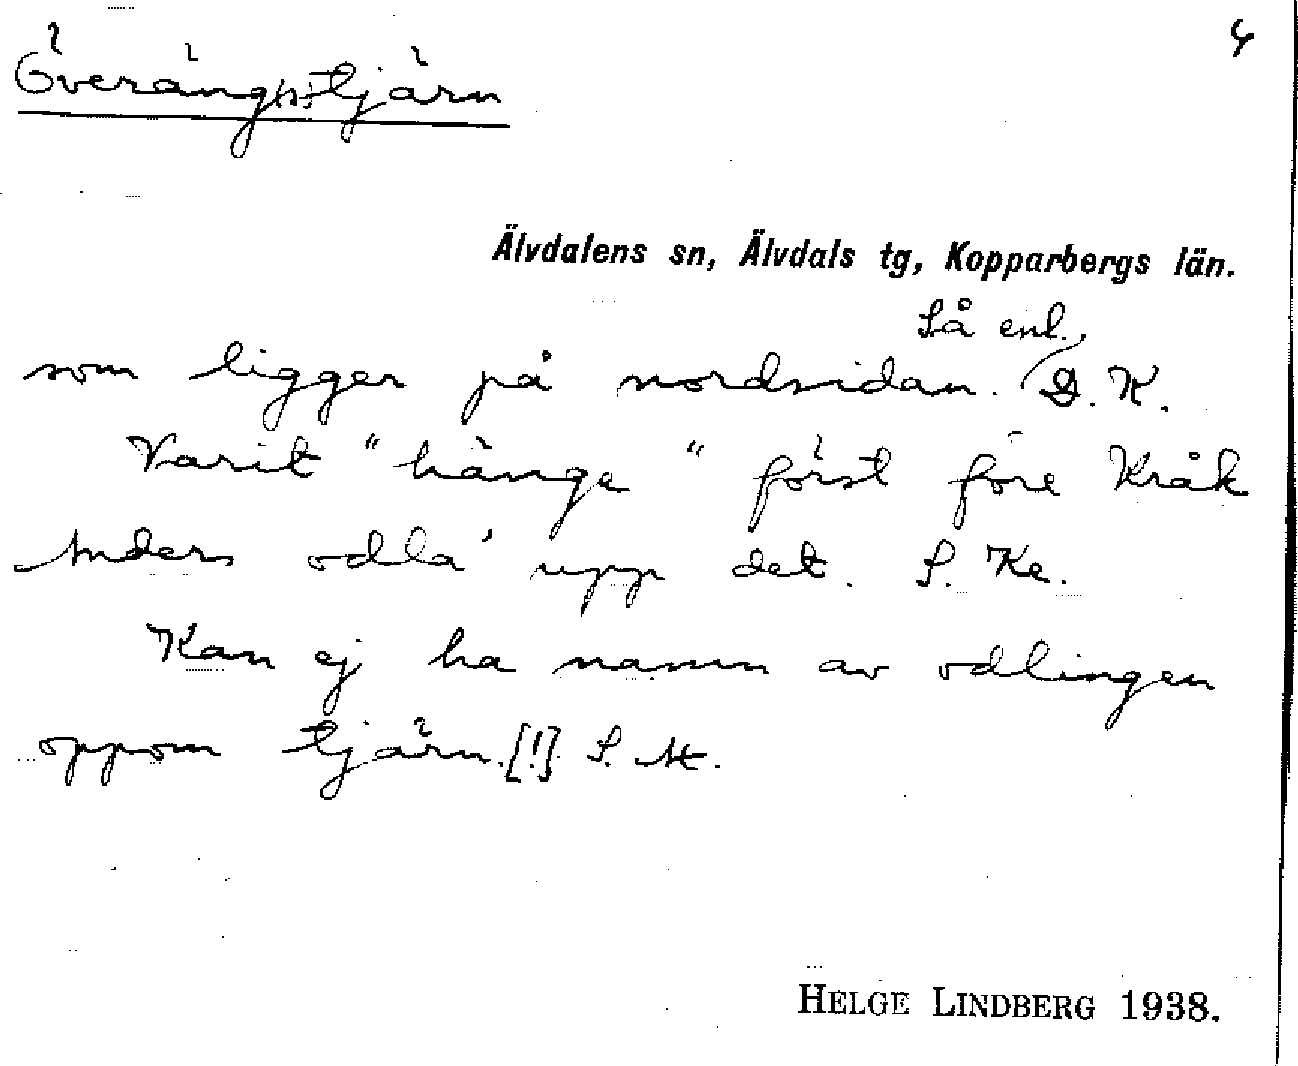 Överängstjärn
4
Älvdalens sn, Älvdals tg, Kopparbergs län.
Så enl.
som ligger på nordsidan. D. K.
Varit "hänge" först före Kråk
Anders odla' upp det. S. Ke.
Kan ej ha namn av odlingen
oppom tjärn.[!] S. M.
HELGE LINDBERG 1938.